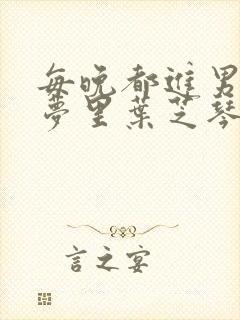 每晚都进男
梦里叶芝琴
言之宴